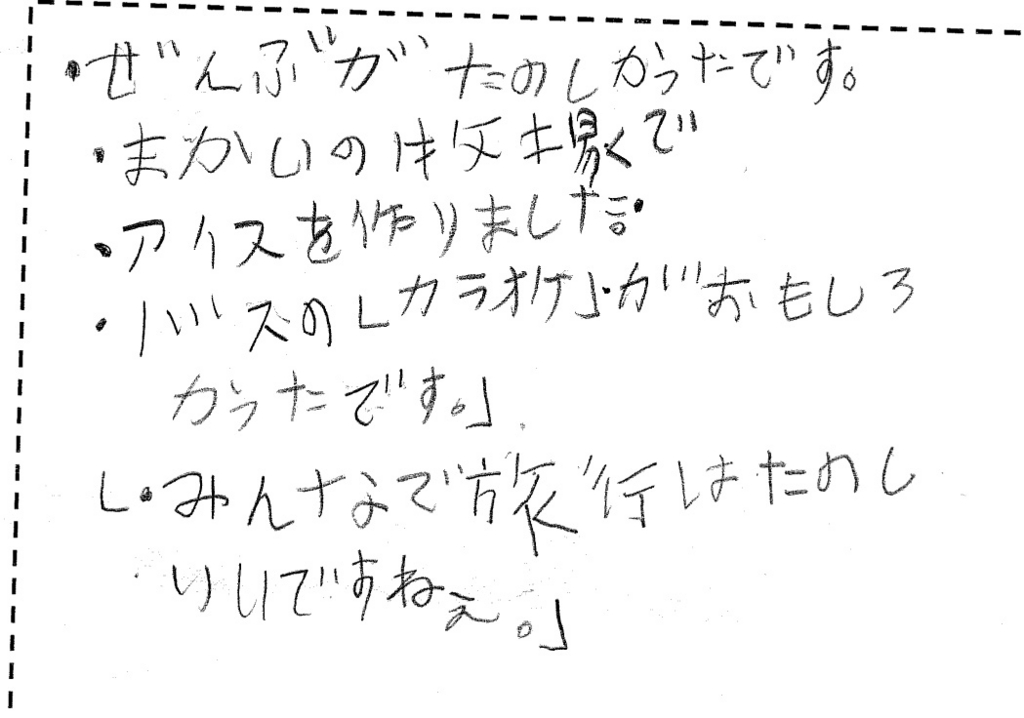 ・ぜんぶがたのしかったです。
・まかいの牧場で
・アイスを作りました。・
・バスの「カラオケ」・がおもしろ
かったです。」
「・みんなで旅行はたのし
いいですねぇ。」